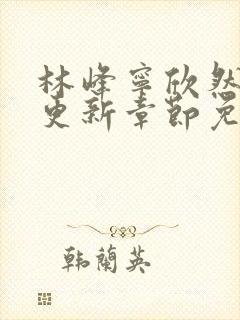 林峰寧欣然
更新章節免
韩蘭英